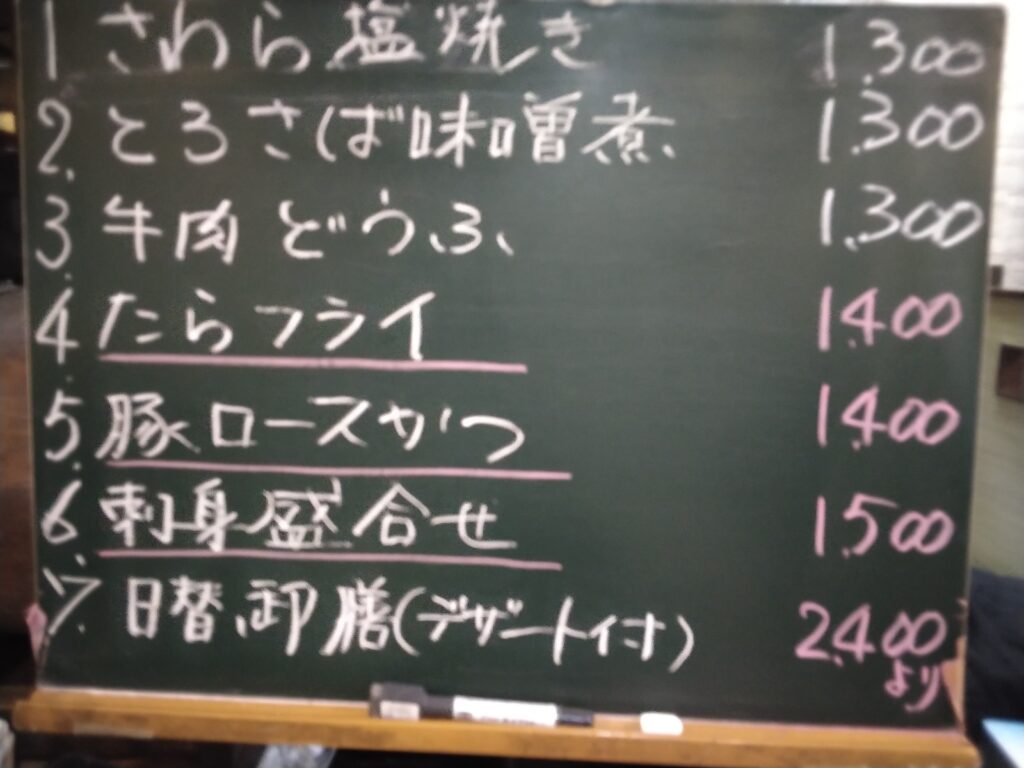 1 さわら塩焼き 1.300
2. とろさば味噌煮 1.300
3. 牛肉どうふ 1.300
4. たらフライ 1.400
5. 豚ロースかつ 1.400
6. 刺身盛合せ 1.500
7. 日替御膳(デザート付) 2.400
より